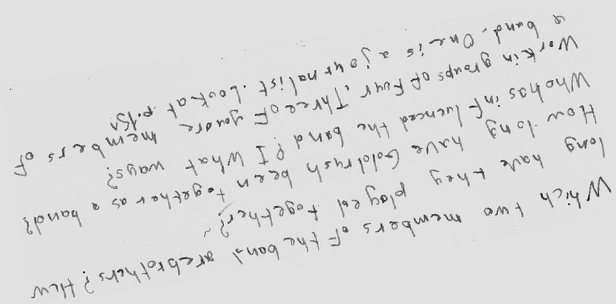 Which two members of the band arebrothers? How
long have they played together?
How long have Goldrush been together as a band?
Who has influenced the band? I What ways?
Work in groups of Four. Three of you are members of
a band. One is a journalist. Look at